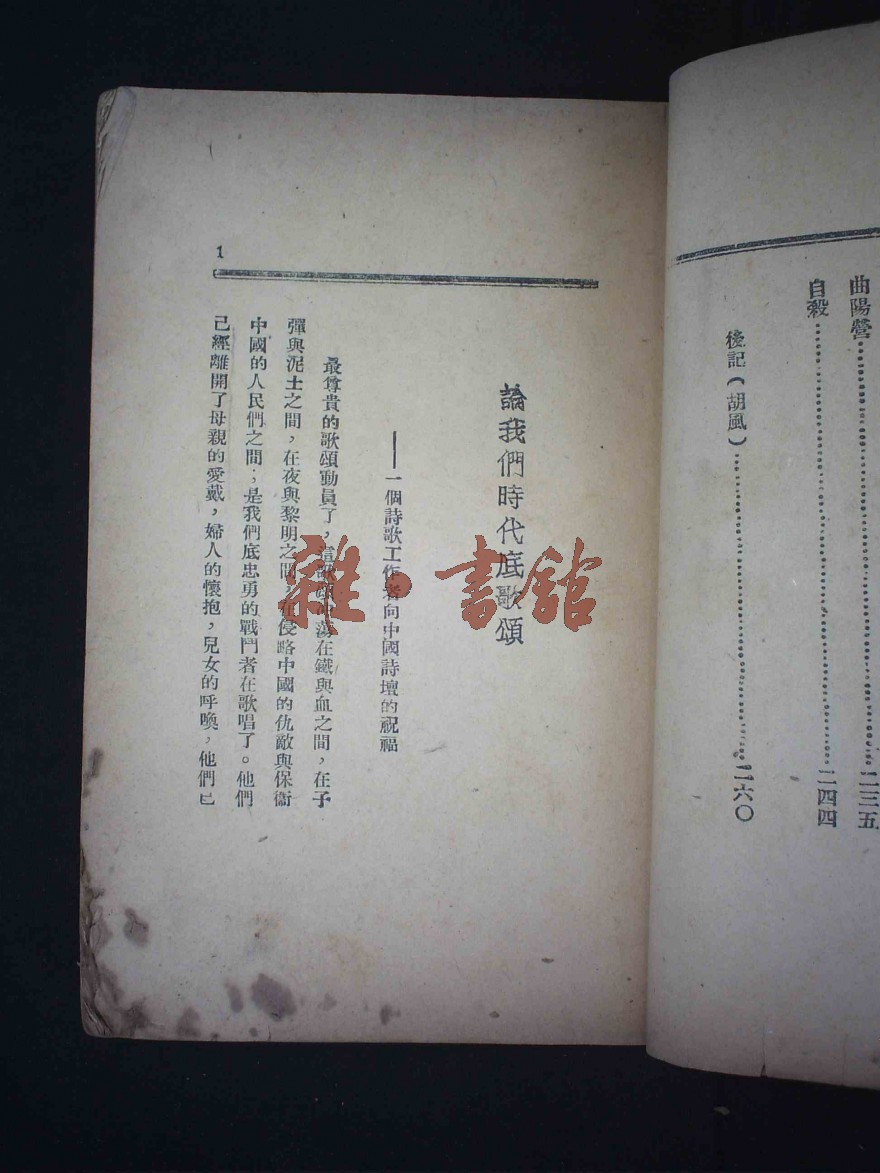 曲陽營………二三五
自殺………二四四
後記(胡風)………二六〇
1
論我們時代底歌頌
——一個詩歌工作者向中國詩壇的祝福
最尊貴的歌頌動員了,這歌頌 蕩在鐵與血之間,在子
彈與泥土之間,在夜與黎明之間,在侵略中國的仇敵與保衞
中國的人民們之間;是我們底忠勇的戰鬥者在歌唱了。他們
己經離開了母親的愛戴,婦人的懷抱,兒女的呼喚,他們已
雜·書館